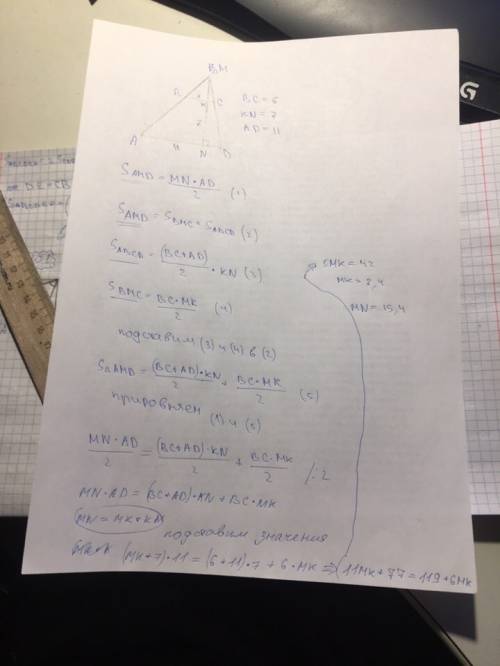 BM
B
K
C
7
A
11
N
D
BC = 6
KN = 7
AD = 11
S AMD = MN·AD / 2 (1)
S AMD = S BMC + S ABCD (2)
S ABCD = (BC+AD) / 2 · KN (3)
S BMC = BC·MK / 2 (4)
подставим (3) и (4) в (2)
S AMD = (BC+AD)·KN / 2 + BC·MK / 2 (5)
прировняем (1) и (5)
MN·AD / 2 = (BC+AD)·KN / 2 + BC·MK / 2 /·2
MN·AD = (BC+AD)·KN + BC·MK
MN = MK+KN
подставим значения
(MK+7)·11 = (6+11)·7 + 6·MK => 11MK+77 = 119+6MK
5MK = 42
MK = 8,4
MN = 15,4